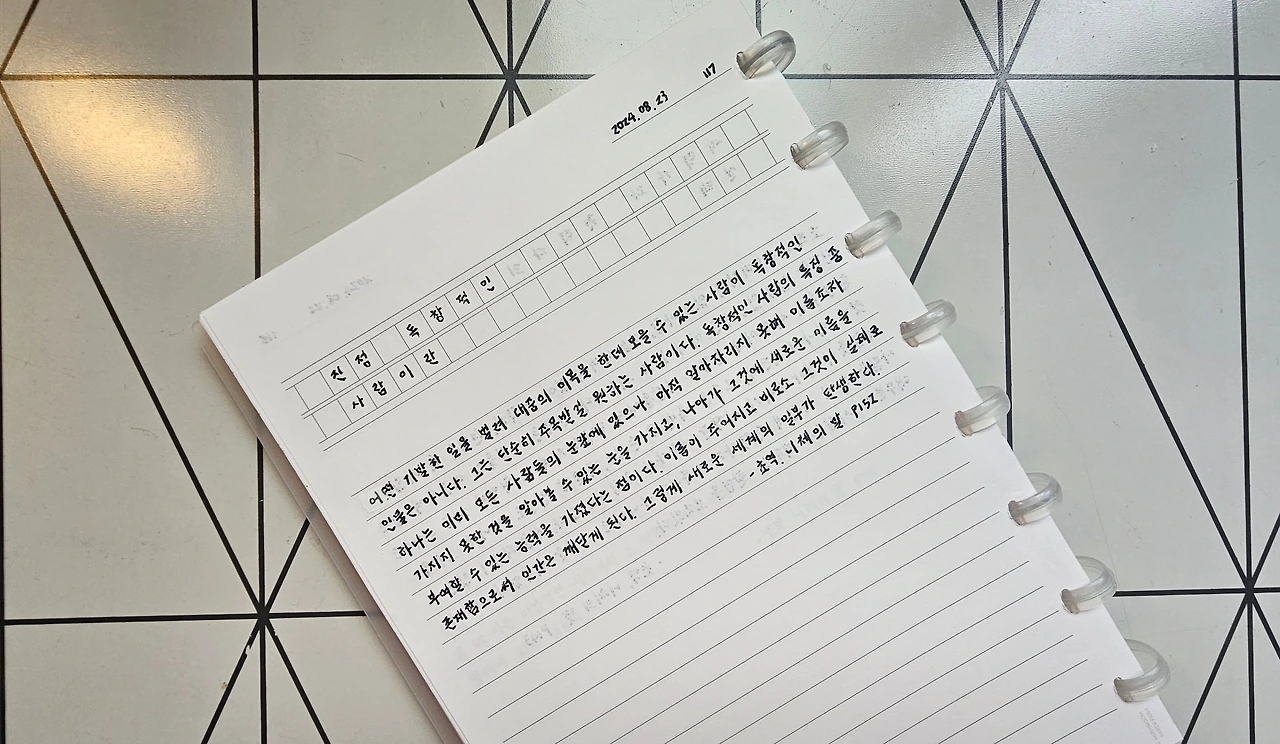 117
2024. 08. 23
진정 독창적인
사람이란
어떤 기발한 일을 벌려 대중의 이목을 한데 모을 수 있는 사람이 독창적인
인물은 아니다. 그는 단순히 주목받길 원하는 사람이다. 독창적인 사람의 특징 중
하나는 이미 모든 사람들의 눈앞에 있으나 아직 알아차리지 못해 이름조차
가지지 못한 것을 알아볼 수 있는 눈을 가지고, 나아가 그것에 새로운 이름을
부여할 수 있는 능력을 가졌다는 점이다. 이름이 주어지고 비로소 그것이 실제로
존재함으로써 인간은 깨닫게 된다. 그렇게 새로운 세계의 일부가 탄생한다.
- 초역. 니체의 말 P152